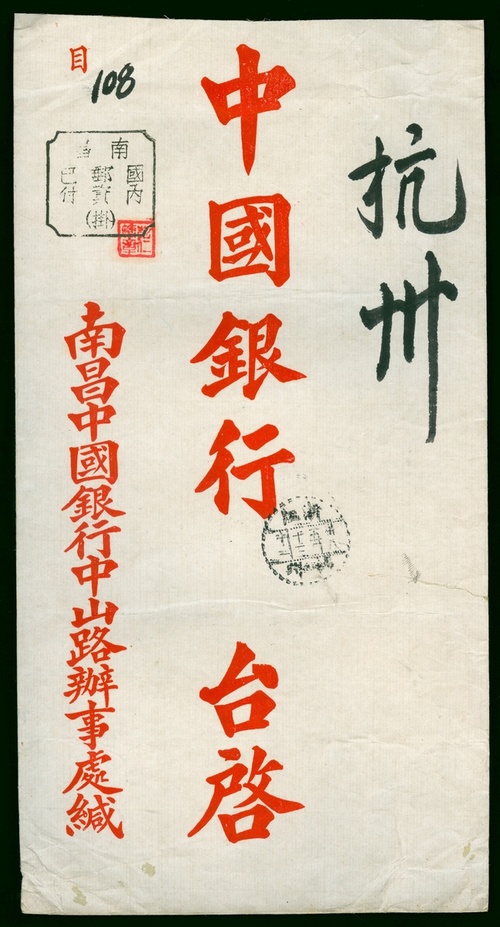 抗卅
中國銀行 台啓
目
108
南昌
國內
郵資(掛)
已付
南昌中國銀行中山路辦事處緘